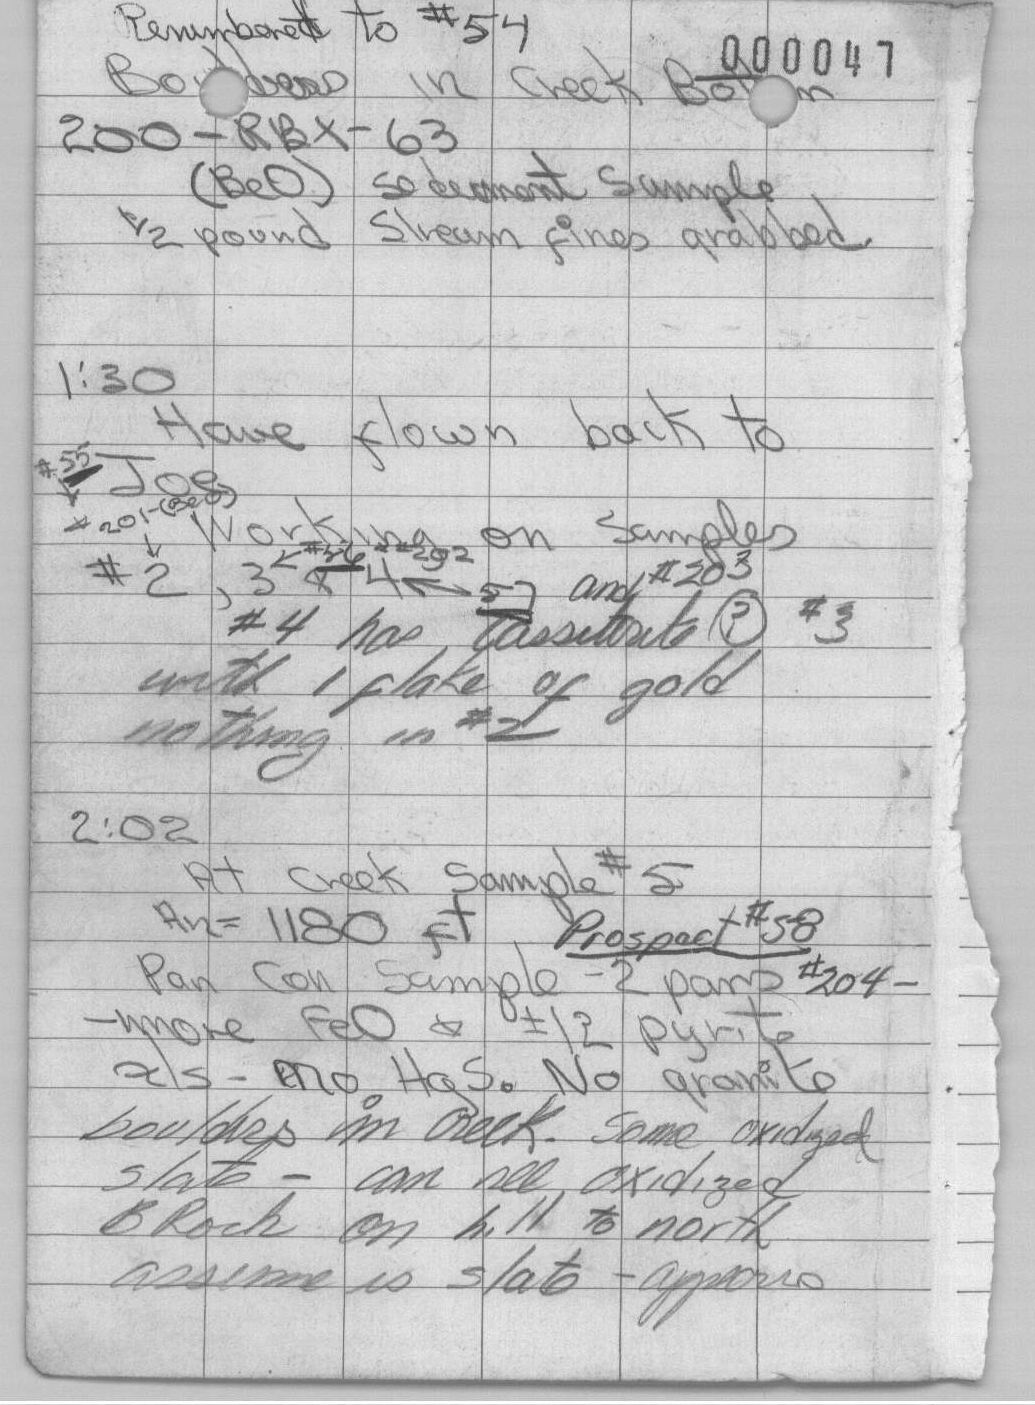 Renumbered to #54
000047
Boulders in Creek Bottom
200-RBX-63
(BeO) sediment Sample
1/2 pound Stream fines grabbed
1:30
Have flown back to
#55 Joe
#201-(BeO) Working on Samples
#56 #202
#2, 3 & 4 57 and #203
#4 has Cassiterite (?) #3
with 1 flake of gold
nothing in #2
2:02
At Creek Sample #5
1180 ft Prospect #58
Pan Con Sample -2 pans #204-
-more FeO & ±12 pyrite
xls - no HgS. No granite
boulders in Creek. Some oxidized
slate - can see oxidized
BRock on hill to north
assume is slate - appears